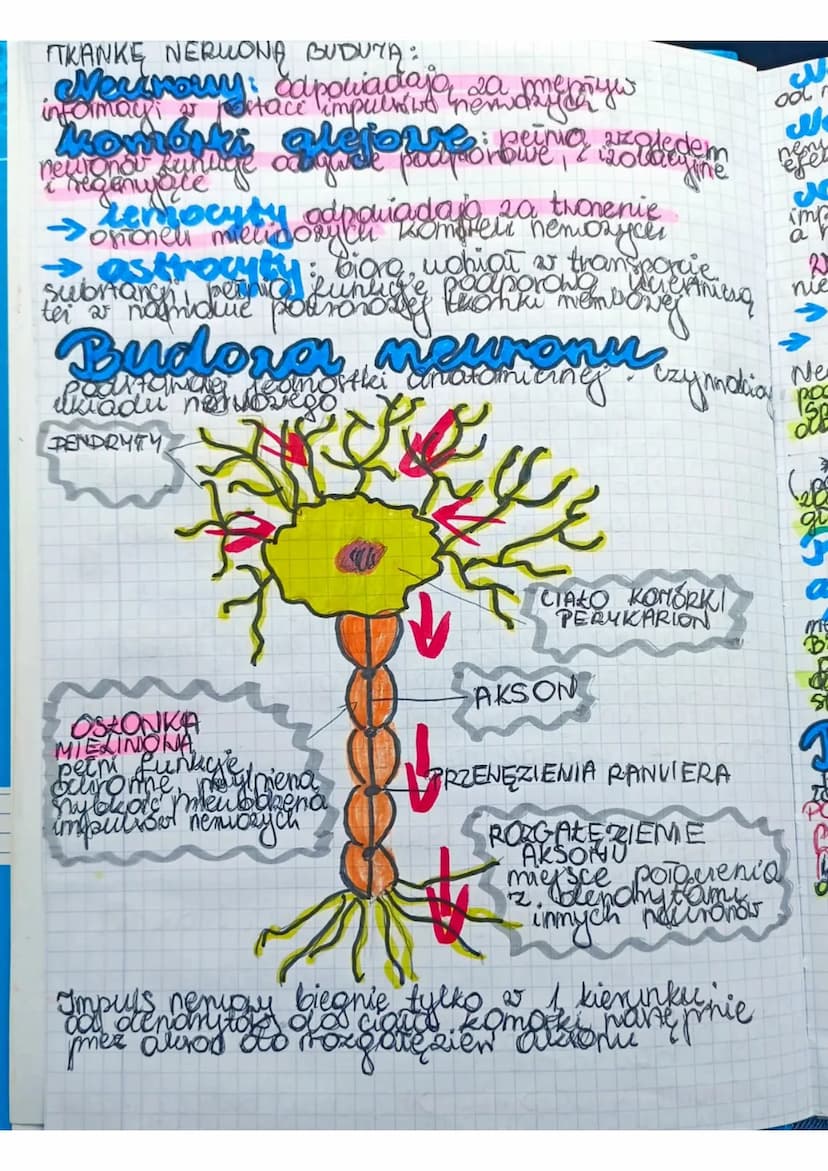 TKANKĘ NERWOWĄ BUDUJĄ:
Neurony: odpowiadają za przepływ
informacji w postaci impulsów nerwowych
komórki glejowe: pełnią względem
neuronów funkcje odżywcze podporowe, i izolacyjne
i regenerujące
→ lemocyty odpowiadają za tworzenie
osłonek mielinowych komórek nerwowych
→ astrocyty: biorą udział w transporcie
substancji, pełnią funkcję podporową uczestniczą
też w naprawie tkanki nerwowej
Budowa neuronu
podstawowej jednostki anatomicznej - czynnościowej
układu nerwowego
DENDRYTY
CIAŁO KOMÓRKI
PERYKARION
AKSON
OSŁONKA
MIELINOWA
pełni funkcję
ochronne,
szybkość
impulsów nerwowych
PRZEWĘZIENIA RANVIERA
ROZGAŁĘZIENIE
AKSONU
miejsce połączenia
z dendrytami
innych neuronów
Impuls nerwowy biegnie tylko w 1 kierunku:
od dendrytów do ciała komórki następnie
przez akson do rozgałęzień aksonu